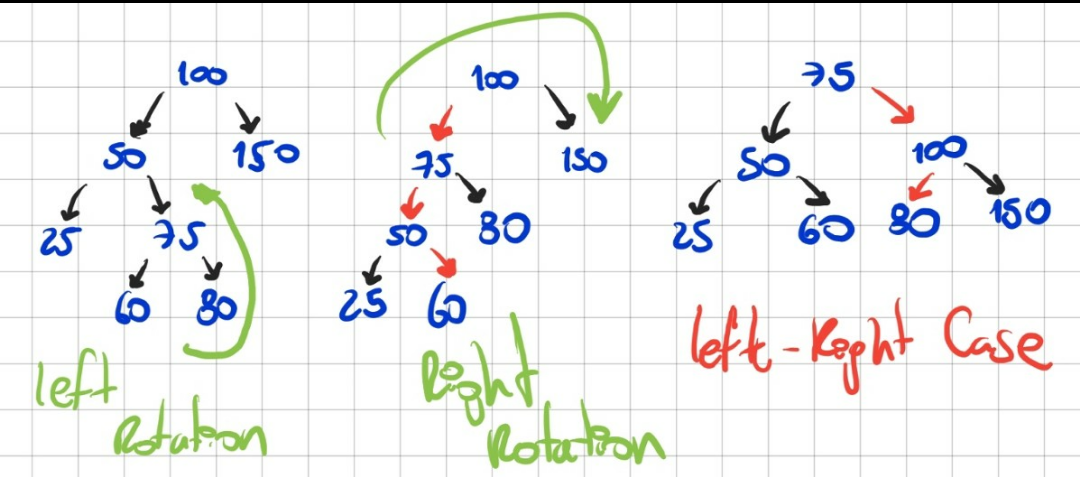 100
50 150
25 75
60 80
left
Rotation
100
75 150
50 80
25 60
Right
Rotation
75
50 100
25 60 80 150
left-Right Case